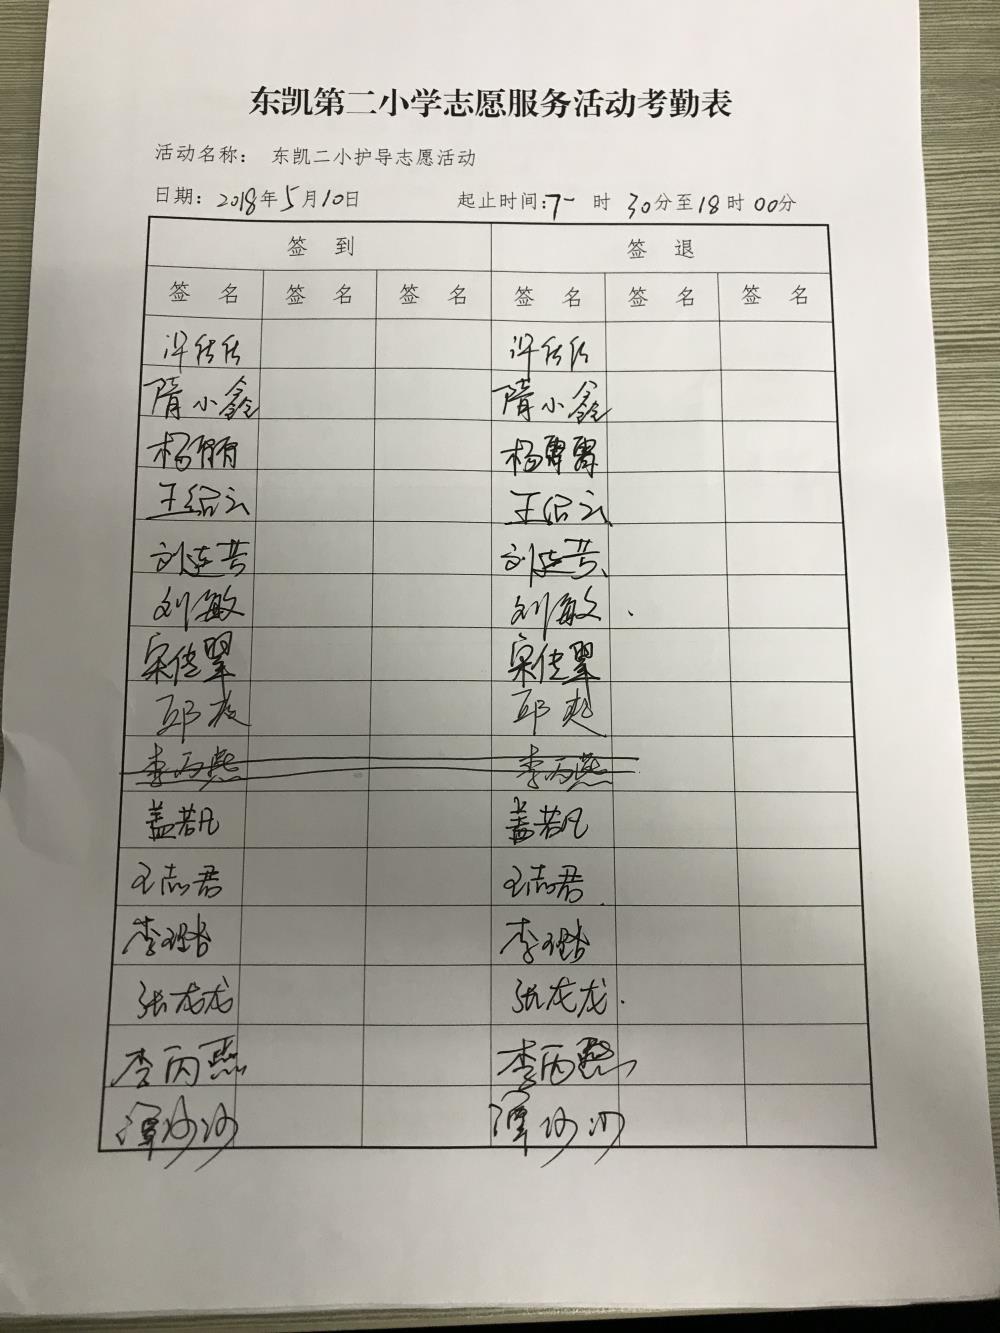 东凯第二小学志愿服务活动考勤表
活动名称： 东凯二小护导志愿活动
日期：2018年5月10日 起止时间：7 时 30分至18时00分
签 到 签 退
签 名 签 名 签 名 签 名 签 名 签 名
许欣欣 许欣欣
隋小鑫 隋小鑫
杨丽丽 杨
王绍云 王绍云
刘莲芳 刘莲芳
刘敏 刘敏
宋佳翠 宋佳翠
邱爽 邱爽
李丙燕 李丙燕
盖若凡 盖若凡
王志君 王志君
李 李
张龙龙 张龙龙
李丙燕 李丙燕
谭沙沙 谭沙沙